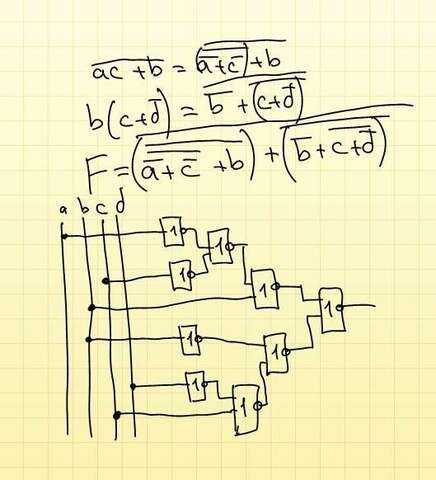 a̅c̅+̅b̅ = (a̅+c̅)+b
b(c+d̅) = b̅ + (c+d̅)
F=(a̅+c̅ +b)+(b̅+c+d̅)
a b c d
1
1
1
1
1
1
1
1
1